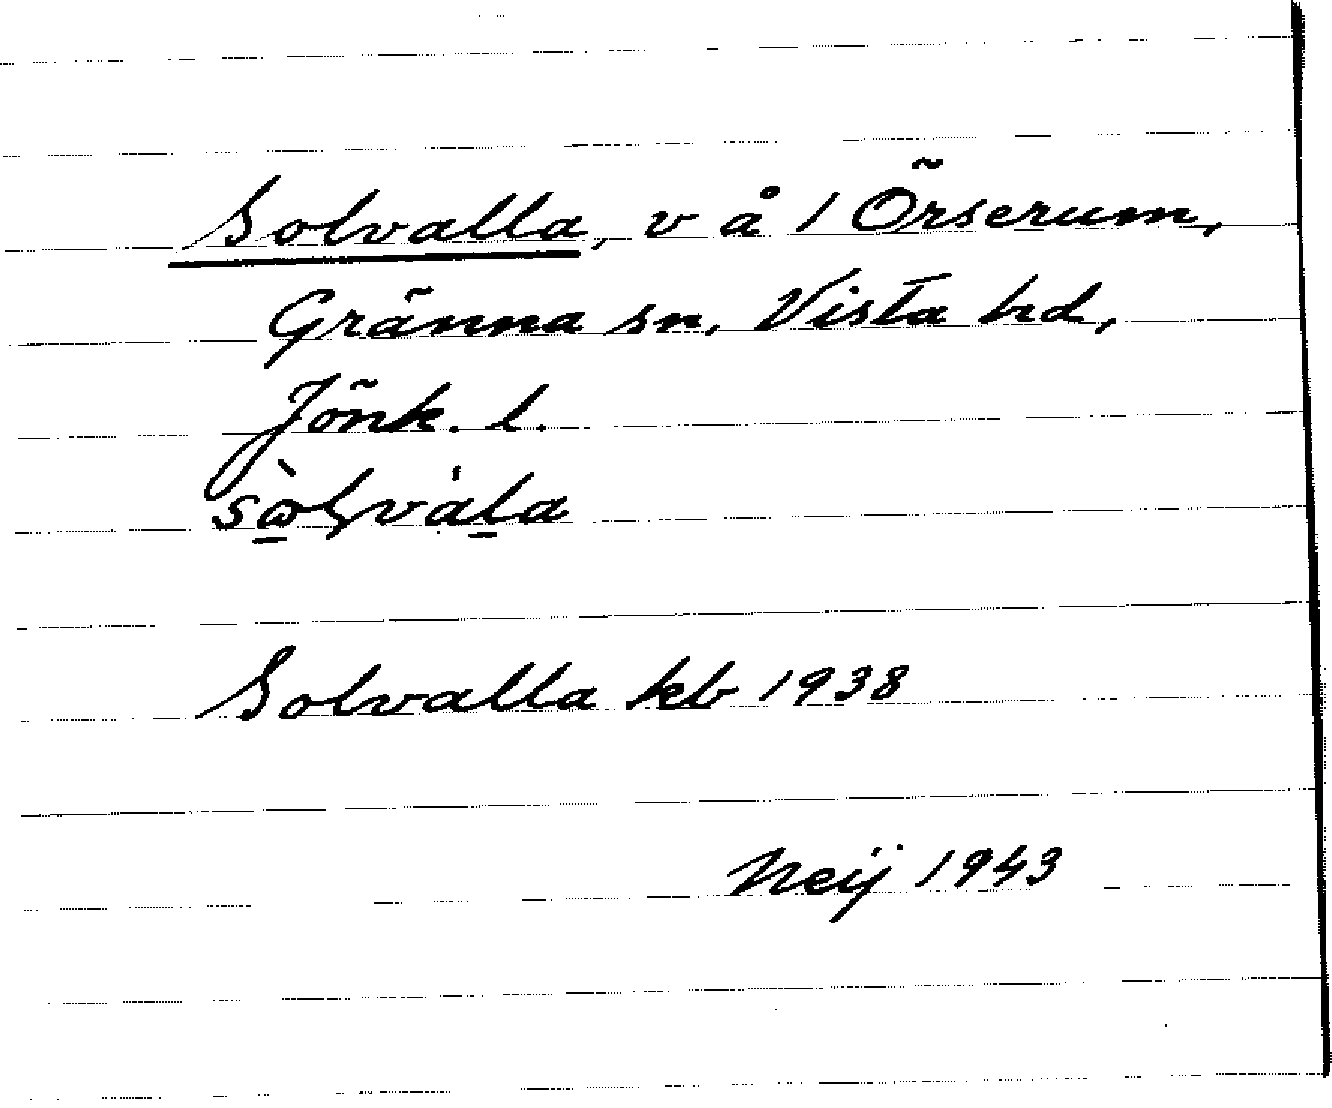 Solvalla, v å 1 Örserum,
Gränna sn, Vista hd,
Jönk. l.
Solvalla kb 1938
Neij 1943